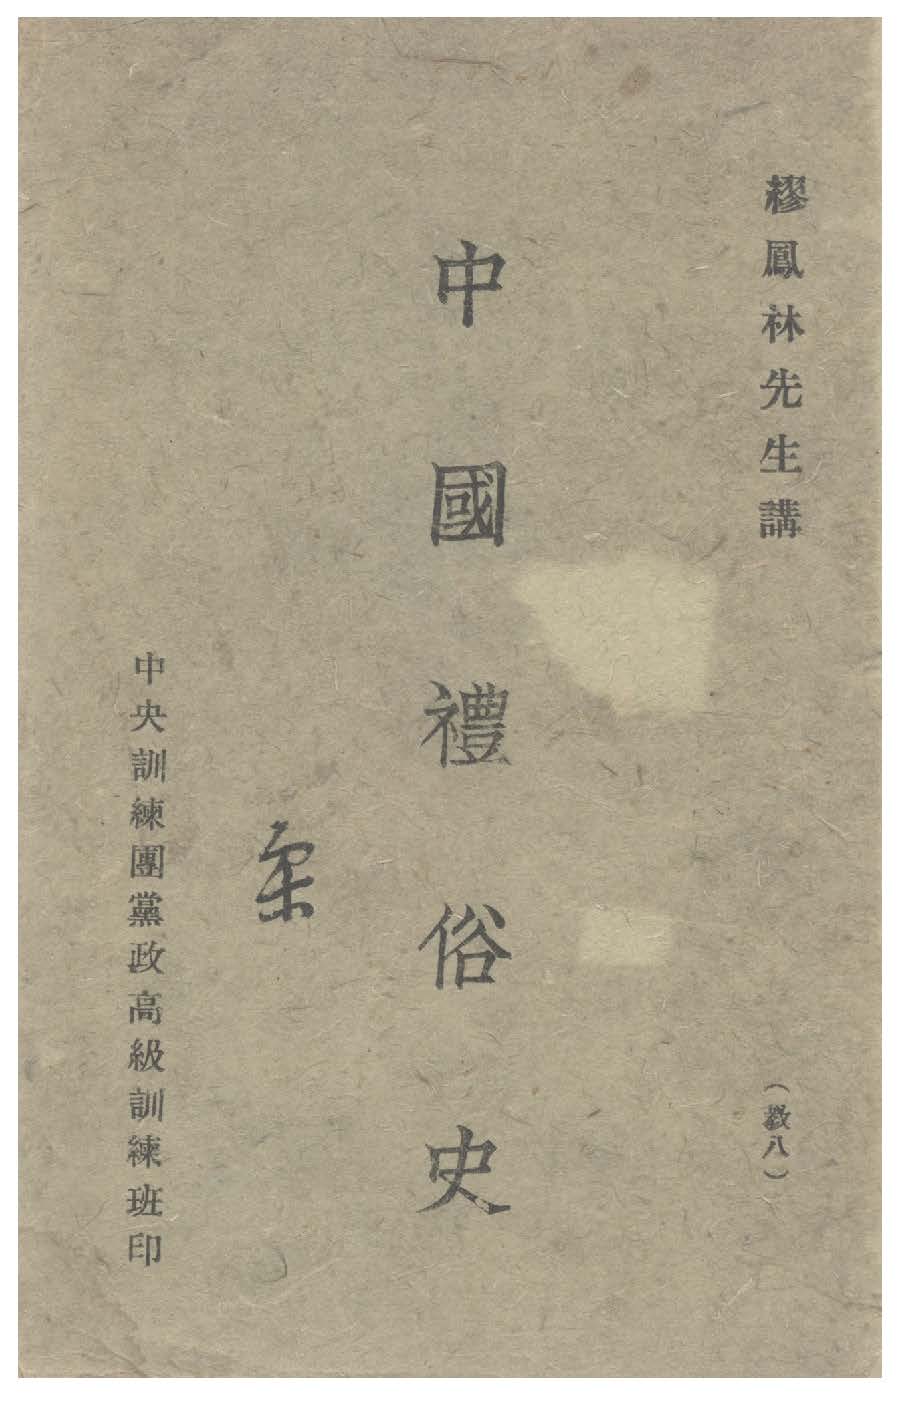 繆鳳林先生講
（教八）
中國禮俗史
中央訓練團黨政高級訓練班印